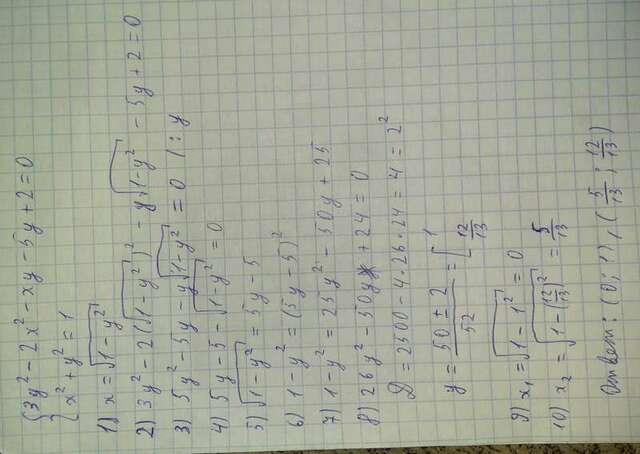 {3y² - 2x² - xy - 5y + 2 = 0
x² + y² = 1
1) x = √(1-y²)
2) 3y² - 2(√(1-y²))² - y√(1-y²) - 5y + 2 = 0
3) 5y² - 5y - y√(1-y²) = 0 | : y
4) 5y - 5 - √(1-y²) = 0
5) √(1-y²) = 5y - 5
6) 1 - y² = (5y - 5)²
7) 1 - y² = 25y² - 50y + 25
8) 26y² - 50y + 24 = 0
D = 2500 - 4·26·24 = 4 = 2²
y = (50 ± 2)/52 = [1
12/13
9) x₁ = √(1-1²) = 0
10) x₂ = √(1-(12/13)²) = 5/13
Ответ: (0; 1), (5/13; 12/13)